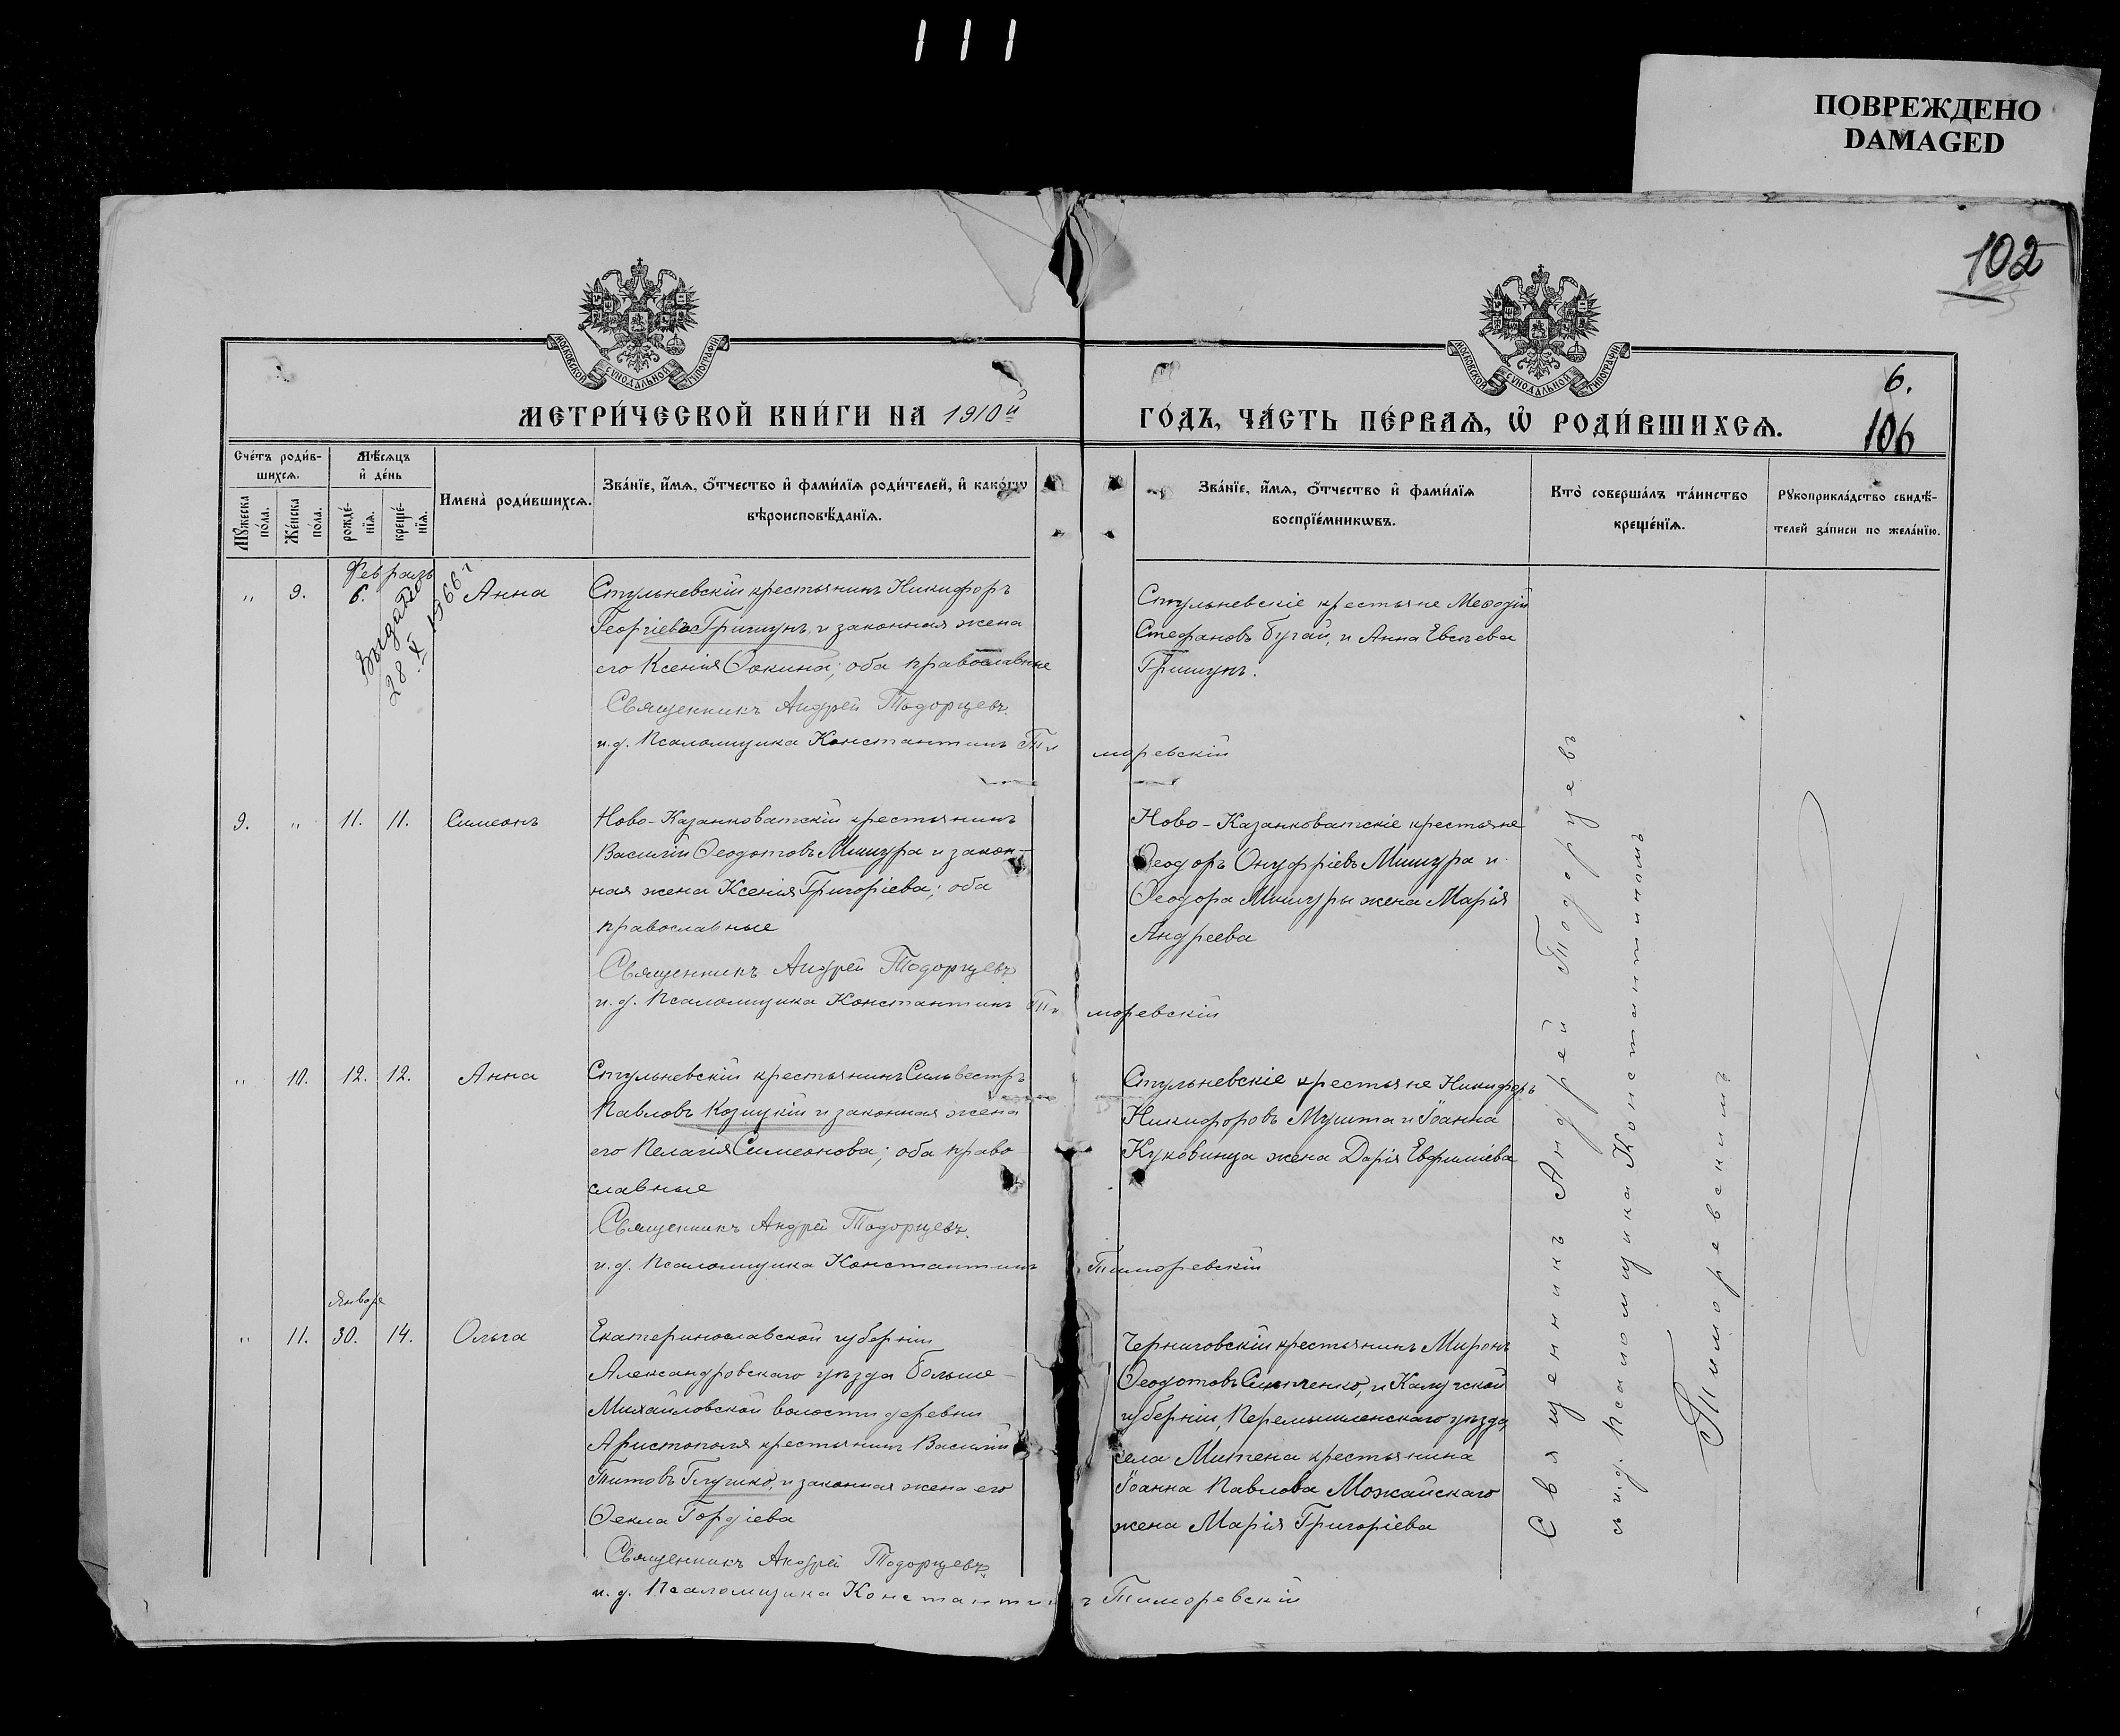 111
ПОВРЕЖДЕНО
DAMAGED
102
МОСКОВСКОЙ СУНОДАЛЬНОЙ ТИПОГРАФІИ
МОСКОВСКОЙ СУНОДАЛЬНОЙ ТИПОГРАФІИ
6.
МЕТРИ́ЧЕСКОЙ КНИ́ГИ НА 1910й
ГО́ДЪ, ЧА́СТЬ ПЕ́РВАѦ, Ѡ҆ РОДИ́ВШИХСѦ.
106
Сче́тъ роди́в-
шихсѧ.
Мѣ́сѧцъ
и҆ де́нь
Мꙋ́жеска
по́ла.
Же́нска
по́ла.
рожде́-
нїѧ.
креще́-
нїѧ.
Имена̀ роди́вшихсѧ.
Зва́нїе, и҆́мѧ, ѻ҆́тчество и҆ фами́лїѧ роди́телей, и҆ како́гѡ
вѣроисповѣ́данїѧ.
Зва́нїе, и҆́мѧ, ѻ҆́тчество и҆ фами́лїѧ
воспрїе́мникѡвъ.
Кто̀ соверша́лъ та́инство
креще́нїѧ.
Рꙋкоприкла́дство свидѣ́-
телей за́писи по жела́нїю.
Февраль
„ 9. 6. Анна
Выдано
28 X 1966 г
Стульневскій крестьянинъ Никифоръ
Георгіевъ Гришунъ, и законная жена
его Ксенія Ѳокина; оба православные
Священникъ Андрей Тодорцевъ.
и.д. Псаломщика Константинъ Ти моревскій
Стульневскіе крестьяне Меѳодій
Стефановъ Бугай, и Анна
Гришунъ.
9. „ 11. 11. Симеонъ
Ново-Казанковатскій крестьянинъ
Василій Ѳеодотовъ Мишура и закон-
ная жена Ксенія Григоріева; оба
православные
Священникъ Андрей Тодорцевъ
и.д. Псаломщика Константинъ Ти моревскій
Ново-Казанковатскіе крестьяне
Ѳеодоръ Онуфріевъ Мишура и
Ѳеодора Мишуры жена Марія
Андреева
„ 10. 12. 12. Анна
Стульневскій крестьянинъ Сильвестръ
Павловъ Козицкій и законная жена
его Пелагія Симеонова; оба право
славные
Священникъ Андрей Тодорцевъ.
и.д. Псаломщика Константинъ Тиморевскій
Стульневскіе крестьяне Никифоръ
Никифоровъ Мушта и Іоанна
Куковинца жена Дарія Евфиміева
Января
„ 11. 30. 14. Ольга
Екатеринославской губерніи
Александровскаго уѣзда Больше-
Михайловской волости деревни
Аристополя крестьянинъ Василій
Титовъ Глушко, и законная жена его
Ѳекла Гордіева
Священникъ Андрей Тодорцевъ.
и.д. Псаломщика Константинъ Тиморевскій
Черниговскій крестьянинъ Миронъ
Ѳеодотовъ и Калужской
губерніи, Перемышленскаго уѣзда,
села Митена крестьянина
Іоанна Павлова Можайскаго
жена Марія Григоріева
Священникъ Андрей Тодорцевъ
съ и.д. Псаломщика Константиномъ
Тиморевскимъ